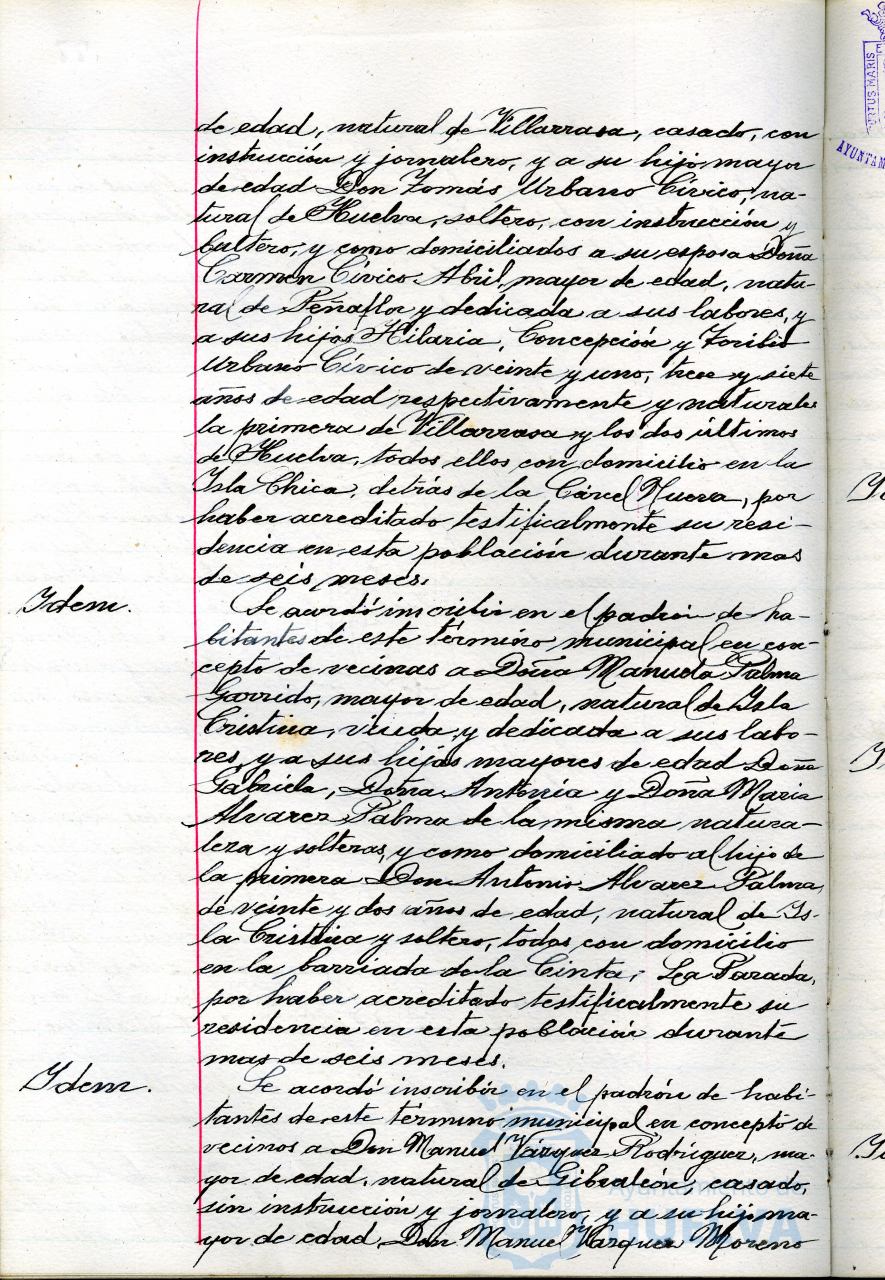 de edad, natural de Villarrasa, casado, con
instrucción y jornalero, y a su hijo mayor
de edad Don Tomás Urbano Cívico, na-
tural de Huelva, soltero, con instrucción y
bultero, y como domiciliados a su esposa Doña
Carmen Cívico Abril, mayor de edad, natu-
ral de Peñaflor y dedicada a sus labores, y
a sus hijos Hilaria, Concepción y Toribio
Urbano Cívico de veinte y uno, trece y siete
años de edad respectivamente y naturales
la primera de Villarrasa y los dos últimos
de Huelva, todos ellos con domicilio en la
Isla Chica, detrás de la Cárcel Nueva, por
haber acreditado testificalmente su resi-
dencia en esta población durante mas
de seis meses.
Idem.
Se acordó inscribir en el padrón de ha-
bitantes de este término municipal en con-
cepto de vecinas a Doña Manuela Palma
Garrido, mayor de edad, natural de Isla
Cristina, viuda y dedicada a sus labo-
res, y a sus hijas mayores de edad Doña
Gabriela, Doña Antonia y Doña Maria
Alvarez Palma de la misma natura-
leza y solteras, y como domiciliado al hijo de
la primera Don Antonio Alvarez Palma,
de veinte y dos años de edad, natural de Is-
la Cristina y soltero, todos con domicilio
en la barriada de la Cinta, La Parada,
por haber acreditado testificalmente su
residencia en esta población durante
mas de seis meses.
Idem.
Se acordó inscribir en el padrón de habi-
tantes de este término municipal en concepto de
vecinos a Don Manuel Vázquez Rodríguez, ma-
yor de edad, natural de Gibraleón, casado,
sin instrucción y jornalero, y a su hijo ma-
yor de edad Don Manuel Vázquez Moreno
Ayuntamiento de
HUELVA